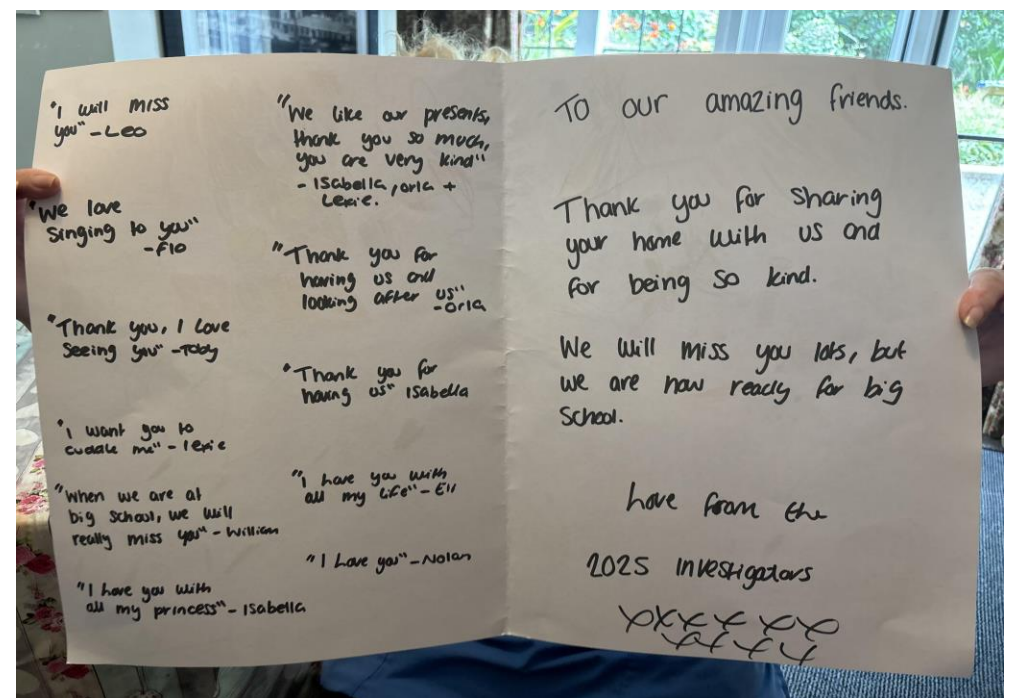 "I will miss
you" - Leo
"We love
Singing to you"
- Flo
"Thank you, I love
Seeing you" - Toby
"I want you to
cuddle me" - lexie
"When we are at
big School, we will
really miss you" - William
"I love you with
all my princess" - Isabella
"We like our presents,
thank you so much,
you are very kind"
- Isabella, orla +
Lexie.
"Thank you for
having us and
looking after us"
- Orla
"Thank you for
having us" Isabella
"I love you with
all my life" -
"I Love you" - Nolan
To our amazing friends.
Thank you for Sharing
your home with us and
for being so kind.
We will miss you lots, but
we are now ready for big
School.
Love from the
2025 Investigators
xxxxxx
xxxx